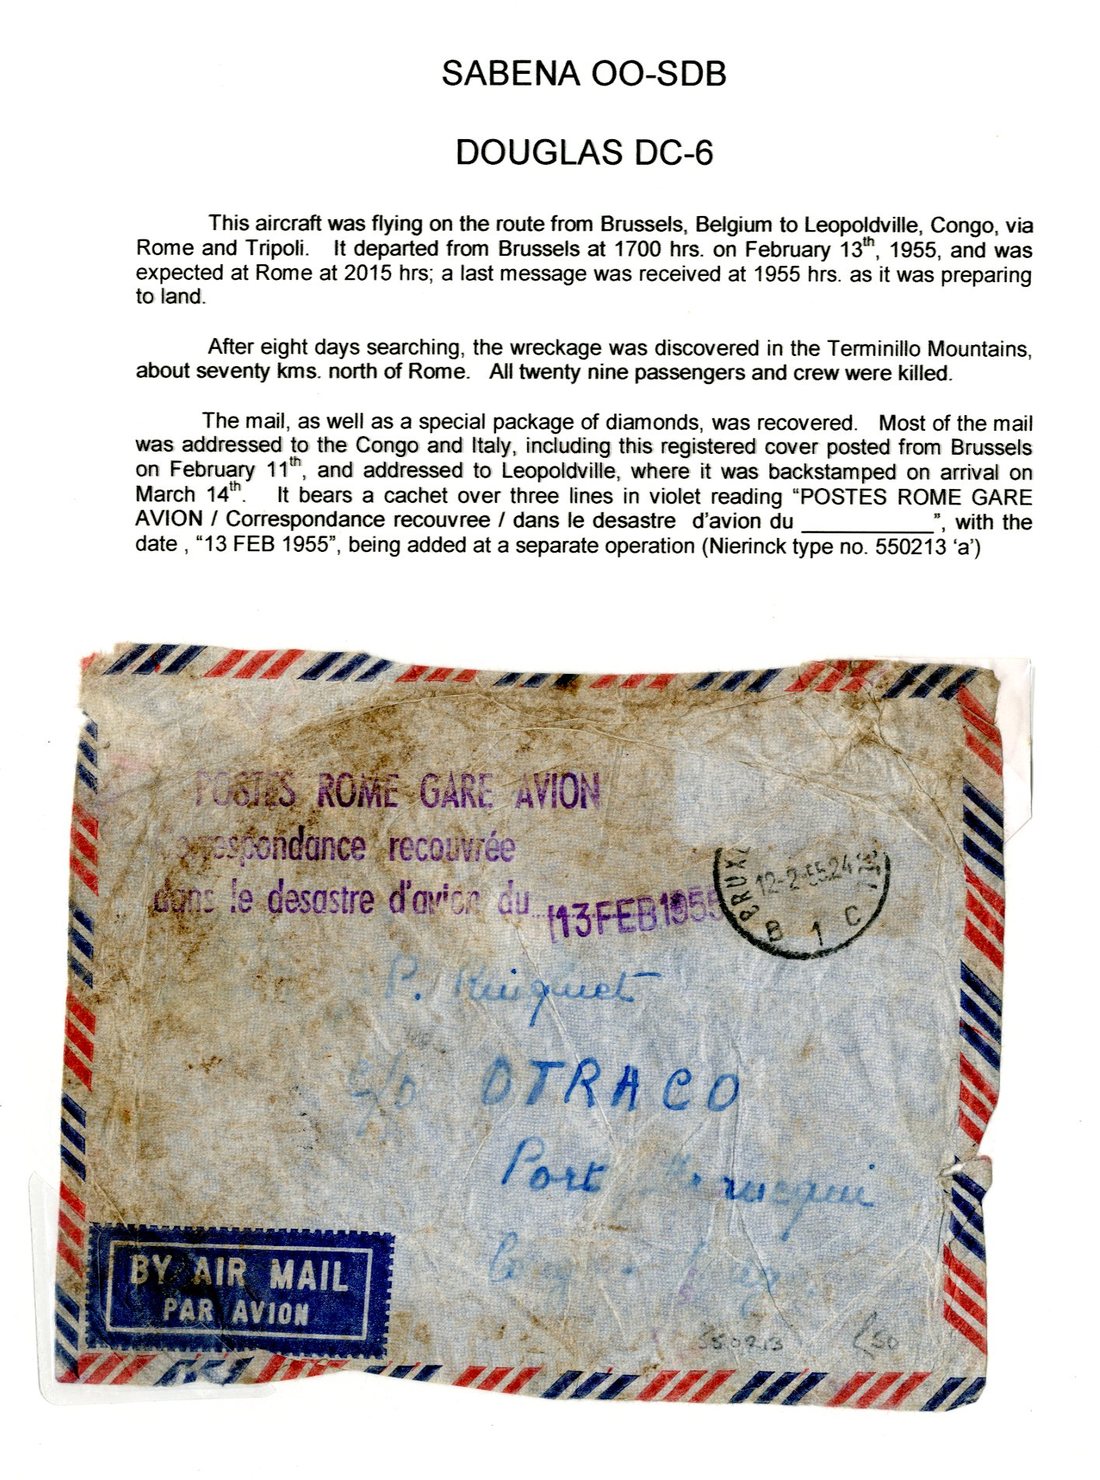 SABENA OO-SDB
DOUGLAS DC-6
This aircraft was flying on the route from Brussels, Belgium to Leopoldville, Congo, via
Rome and Tripoli. It departed from Brussels at 1700 hrs. on February 13th, 1955, and was
expected at Rome at 2015 hrs; a last message was received at 1955 hrs. as it was preparing
to land.
After eight days searching, the wreckage was discovered in the Terminillo Mountains,
about seventy kms. north of Rome. All twenty nine passengers and crew were killed.
The mail, as well as a special package of diamonds, was recovered. Most of the mail
was addressed to the Congo and Italy, including this registered cover posted from Brussels
on February 11th, and addressed to Leopoldville, where it was backstamped on arrival on
March 14th. It bears a cachet over three lines in violet reading “POSTES ROME GARE
AVION / Correspondance recouvree / dans le desastre d’avion du ____________”, with the
date , “13 FEB 1955”, being added at a separate operation (Nierinck type no. 550213 ‘a’)
POSTES ROME GARE AVION
correspondance recouvrée
dans le desastre d'avion du
13 FEB 1955
12-2-55.24
B 1 C
P.
c/o OTRACO
Port
BY AIR MAIL
PAR AVION
550213
£50